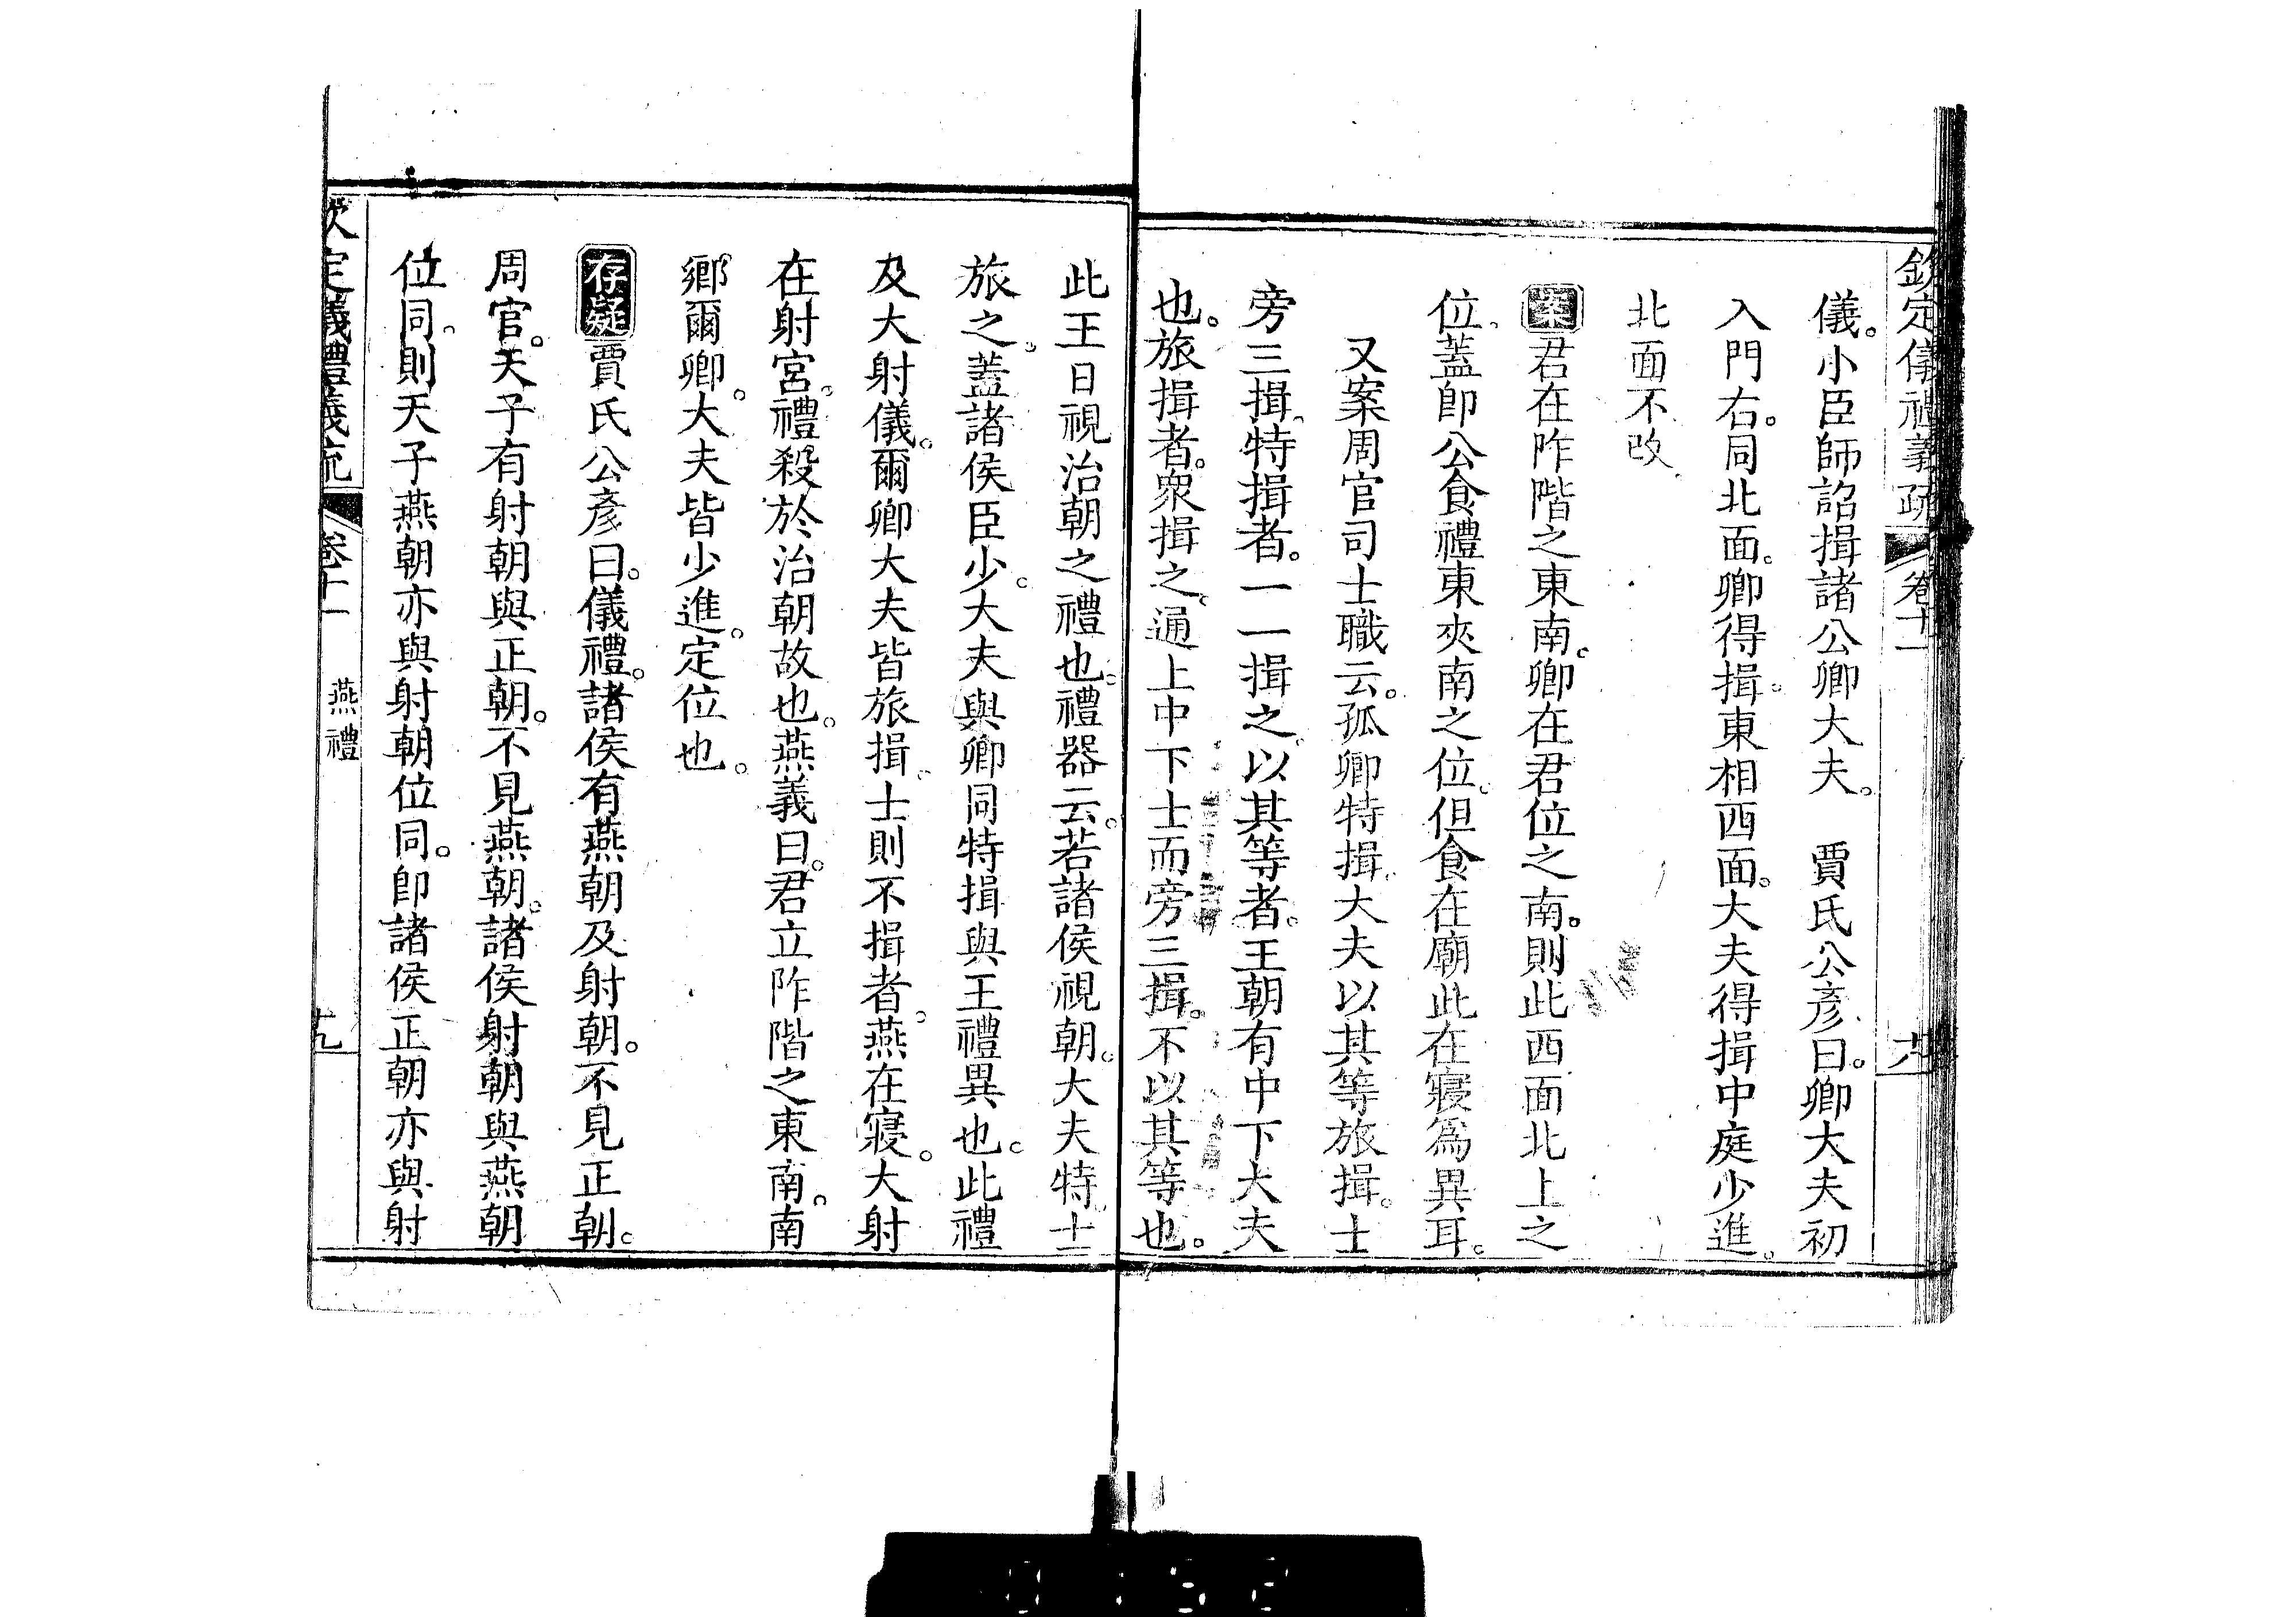 欽定儀禮義疏 卷十一
儀。小臣師詔揖諸公卿大夫。 賈氏公彥曰。卿大夫初
入門右。同北面。卿得揖。東相西面。大夫得揖中庭少進。
北面不改
案君在阼階之東南。卿在君位之南。則此西面北上之
位。蓋卽公食禮東夾南之位。但食在廟此在寢爲異耳。
又案周官司士職云。孤卿特揖。大夫以其等旅揖。士
旁三揖。特揖者。一一揖之。以其等者。王朝有中下大夫
也。旅揖者。眾揖之。通上中下士而旁三揖。不以其等也。
此王日視治朝之禮也。禮器云。若諸侯視朝。大夫特士
旅之。蓋諸侯臣少。大夫與卿同特揖與王禮異也。此禮
及大射儀。爾卿大夫皆旅揖。士則不揖者。燕在寢。大射
在射宮。禮殺於治朝故也。燕義曰。君立阼階之東南。南
鄉爾卿。大夫皆少進。定位也。
存疑賈氏公彥曰。儀禮。諸侯有燕朝及射朝。不見正朝。
周官。天子有射朝與正朝。不見燕朝。諸侯射朝與燕朝
位同。則天子燕朝亦與射朝位同。卽諸侯正朝亦與射
欽定儀禮義疏 卷十一 燕禮 九